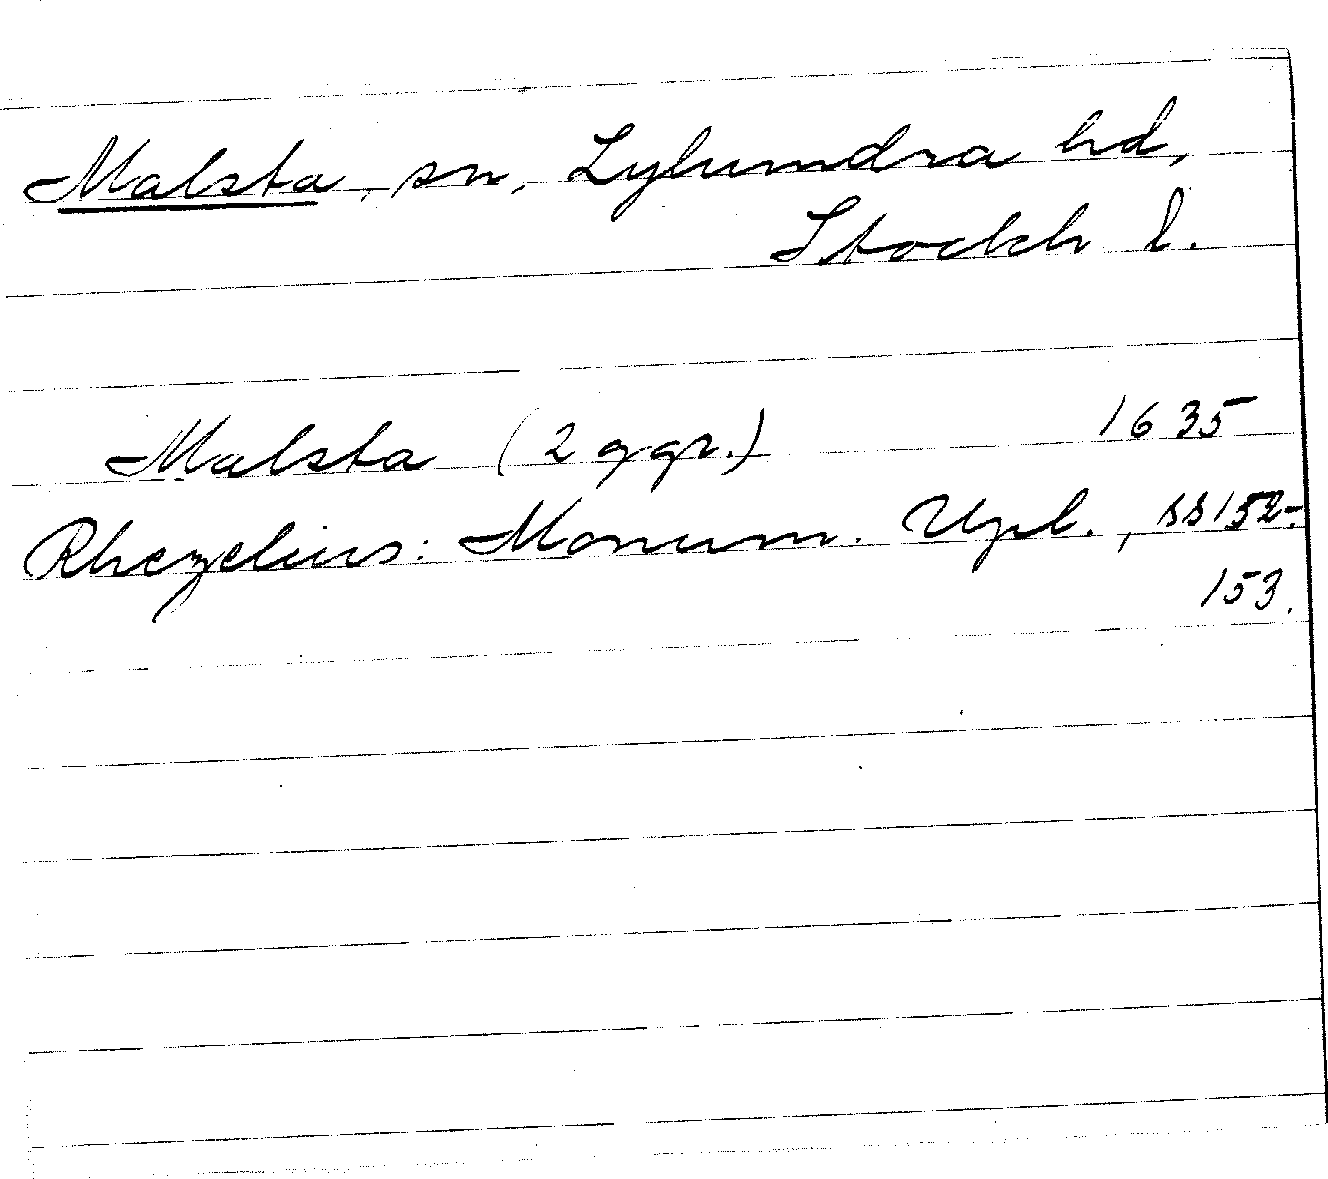 Malsta, sn, Lyhundra hd,
Stockh l.
Malsta (2 ggr.) 1635
Rhezelius: Monum. Upl., ss 152-
153.